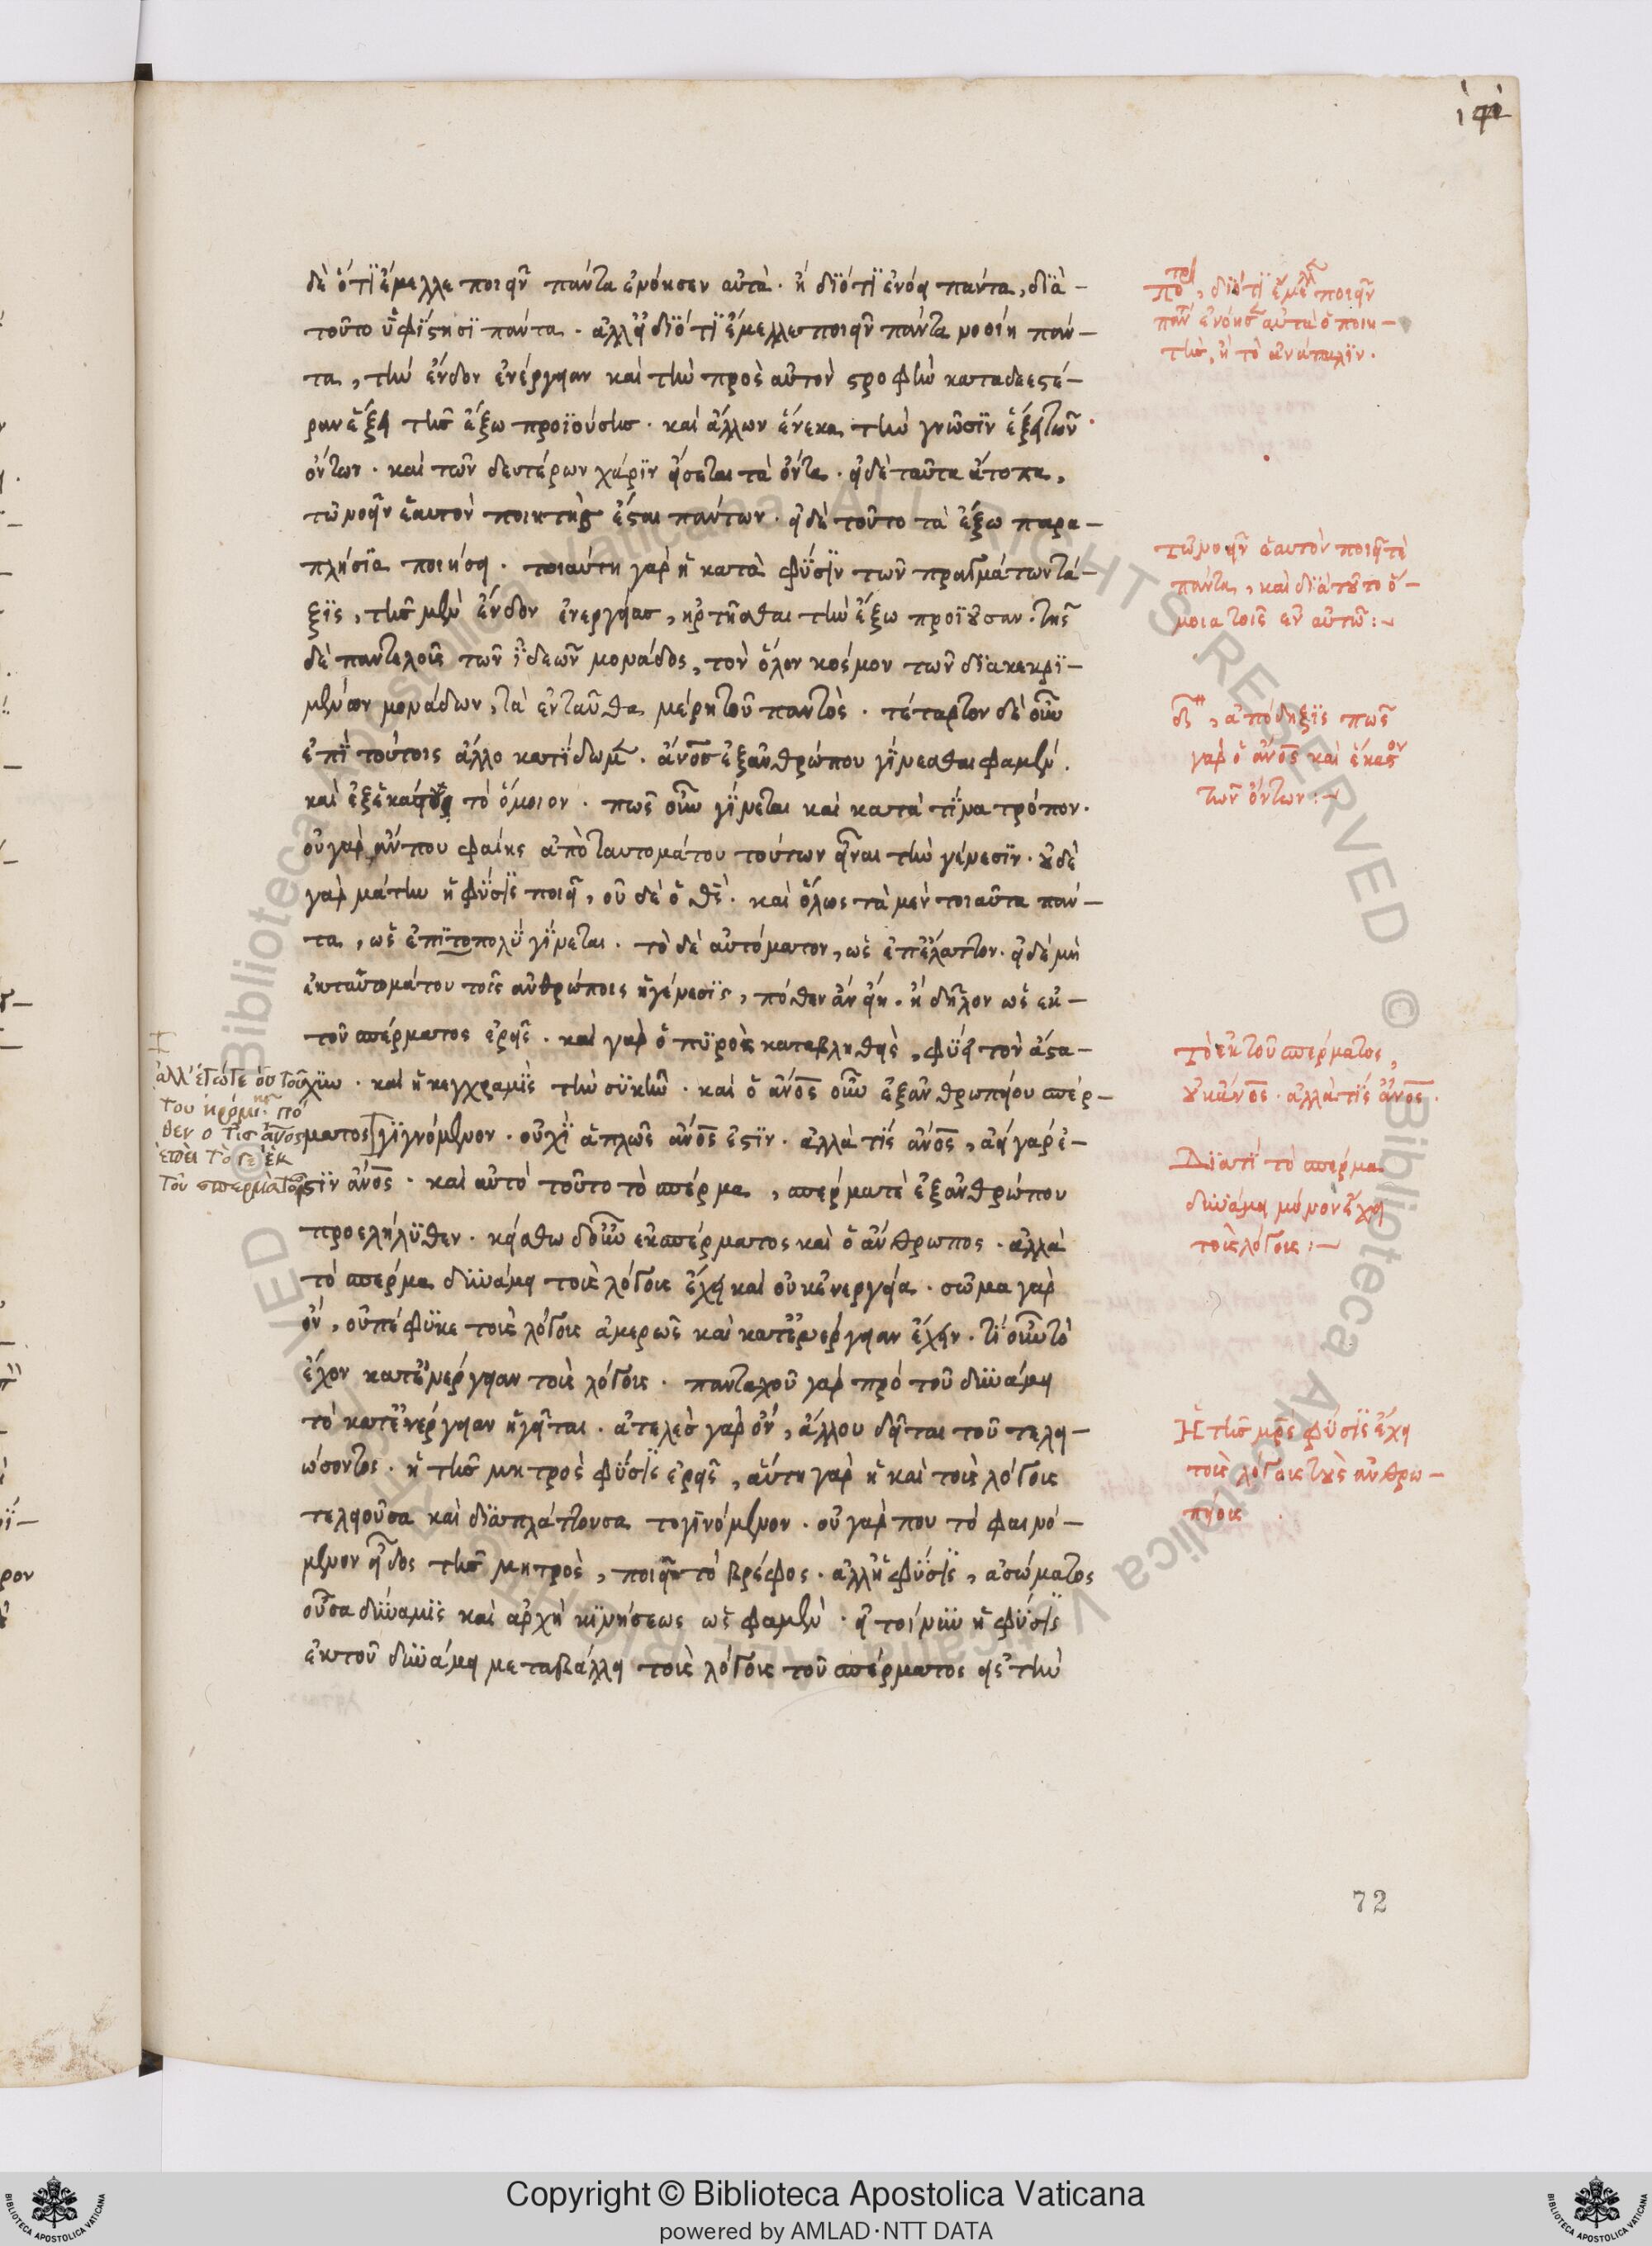 δὲ ὅτι ἔμελλε ποιεῖν πάντα ἐνόησεν αὐτὰ. ἢ διότι ἐνόει πάντα, διὰ-
τοῦτο ὑφίστησι πάντα. ἀλλ' εἰ διότι ἔμελλε ποιεῖν πάντα νοοίη πάν-
τα, τὴν ἔνδον ἐνέργειαν καὶ τὴν πρὸς αὐτὸν στροφὴν καταδεεστέ-
ραν ἕξει τῆς ἔξω προϊούσης. καὶ ἄλλων ἕνεκα τὴν γνῶσιν ἕξει τῶν
ὄντων. καὶ τῶν δευτέρων χάριν εἴσεται τὰ ὄντα. εἰ δὲ ταῦτα ἄτοπα,
τῷ νοεῖν ἑαυτὸν ποιητὴς ἔσται πάντων. εἰ δὲ τοῦτο τὰ ἔξω παρα-
πλήσια ποιήσει. τοιαύτη γὰρ ἡ κατὰ φύσιν τῶν πραγμάτων τά-
ξις, τῆς μὲν ἔνδον ἐνεργείας, ἠρτῆσθαι τὴν ἔξω προϊοῦσαν. τῆς
δὲ παντελοῦς τῶν ἰδεῶν μονάδος, τὸν ὅλον κόσμον τῶν διακεκρι-
μένων μονάδων, τὰ ἐνταῦθα μέρη τοῦ παντὸς. τέταρτον δὲ οὖν
ἐπὶ τούτοις ἄλλο κατίδωμεν. ἄνος ἐξ ἀνθρώπου γίνεσθαι φαμὲν.
καὶ ἐξ ἑκάστου τὸ ὅμοιον. πῶς οὖν γίνεται καὶ κατὰ τίνα τρόπον.
οὐ γὰρ ἄν που φαίης ἀπὸ ταυτομάτου τούτων εἶναι τὴν γένεσιν. οὐδὲ
γὰρ μάτην ἡ φύσις ποιεῖ, οὐδὲ ὁ θς. καὶ ὅλως τὰ μὲν τοιαῦτα πάν-
τα, ὡς ἐπὶ τοπολὺ γίνεται. τὸ δὲ αὐτόματον, ὡς ἐπ' ἔλαττον. εἰ δὲ μὴ
ἐκ ταυτομάτου τοῖς ἀνθρώποις ἡ γένεσις, πόθεν ἂν εἴη. ἢ δῆλον ὡς ἐκ-
τοῦ σπέρματος ἐρεῖς. καὶ γὰρ ὁ πυρὸς καταβληθεὶς, φύει τὸν ἄστα-
χυν. καὶ ἡ κεγχραμὶς τὴν συκῆν. καὶ ὁ ἄνος οὖν ἐξ ἀνθρωπείου σπέρ-
ματος γιγνόμενον. οὐχὶ ἁπλῶς ἄνος ἐστὶν. ἀλλὰ τὶς ἄνος, ἀεὶ γάρ ἐ-
στιν ἄνος. καὶ αὐτὸ τοῦτο τὸ σπέρμα, σπέρμα τὲ ἐξ ἀνθρώπου
προελήλυθεν. κείσθω δ' οὖν ἐκ σπέρματος καὶ ὁ ἄνθρωπος. ἀλλὰ
τὸ σπέρμα δυνάμει τοὺς λόγους ἔχει καὶ οὐκ ἐνεργείᾳ. σῶμα γὰρ
ὂν, οὐ πέφυκε τοὺς λόγους ἀμερῶς καὶ κατ' ἐνέργειαν ἔχειν. τί οὖν τὸ
ἔχον κατ' ἐνέργειαν τοὺς λόγους. πανταχοῦ γὰρ πρὸ τοῦ δυνάμει
τὸ κατ' ἐνέργειαν ἡγεῖται. ἀτελὲς γὰρ ὂν, ἄλλου δεῖται τοῦ τελει-
ώσοντος. ἡ τῆς μητρὸς φύσις ἐρεῖς, αὕτη γὰρ ἡ καὶ τοὺς λόγους
τελειοῦσα καὶ διαπλάττουσα τὸ γινόμενον. οὐ γὰρ που τὸ φαινό-
μενον εἶδος τῆς μητρὸς, ποιεῖ τὸ βρέφος. ἀλλ' ἡ φύσις, ἀσώματος
οὖσα δύναμις καὶ ἀρχὴ κινήσεως ὡς φαμὲν. εἰ τοίνυν ἡ φύσις
ἐκ τοῦ δυνάμει μεταβάλλει τοὺς λόγους τοῦ σπέρματος εἰς τὴν
διότι ἔμελλ ποιεῖν
πάντ ἐνόησ αὐτὰ ὁ ποιη-
τὴς, ἢ τὸ ἀνάπαλιν.
τῷ νοεῖν ἑαυτὸν ποιεῖ τὲ
πάντα, καὶ διὰ τοῦτο ὅ-
μοια τοῖς ἐν αὐτῷ:~
ἀπόδειξις πῶς
γὰρ ὁ ἄνος καὶ ἕκαστον
τῶν ὄντων:~
τὸ ἐκ τοῦ σπέρματος,
οὐκ ἄνος. ἀλλὰ τίς ἄνος.
Διατί τὸ σπέρμα
δυνάμει μόνον ἔχει
τοὺς λόγους:~
Ἡ τῆς μρς φύσις ἔχει
τοὺς λόγους τοὺς ἀνθρω-
πείους
του
πό
θεν ὁ τὶς ἄνος
ἐπεὶ τό γε ἐκ
τοῦ σπέρματος
72
Copyright © Biblioteca Apostolica Vaticana
powered by AMLAD·NTT DATA